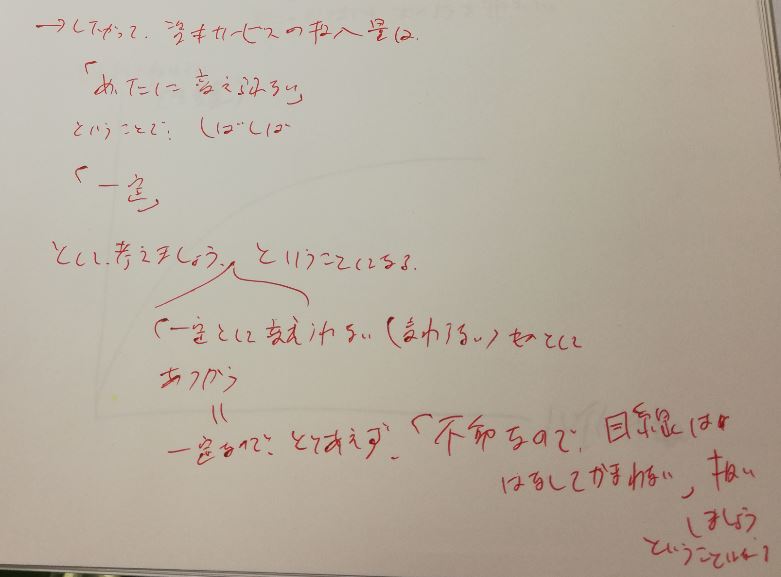 →したがって、資本サービスの投入量は、
「めったに変えられない」
ということで、しばしば
「一定」
として、考えましょう、ということになる。
「一定として変えられない（変わらない）ものとして
あつかう
=
一定なので、とりあえず、「不動なので、目線は
はなしてかまわない」扱い
しましょう
ということ